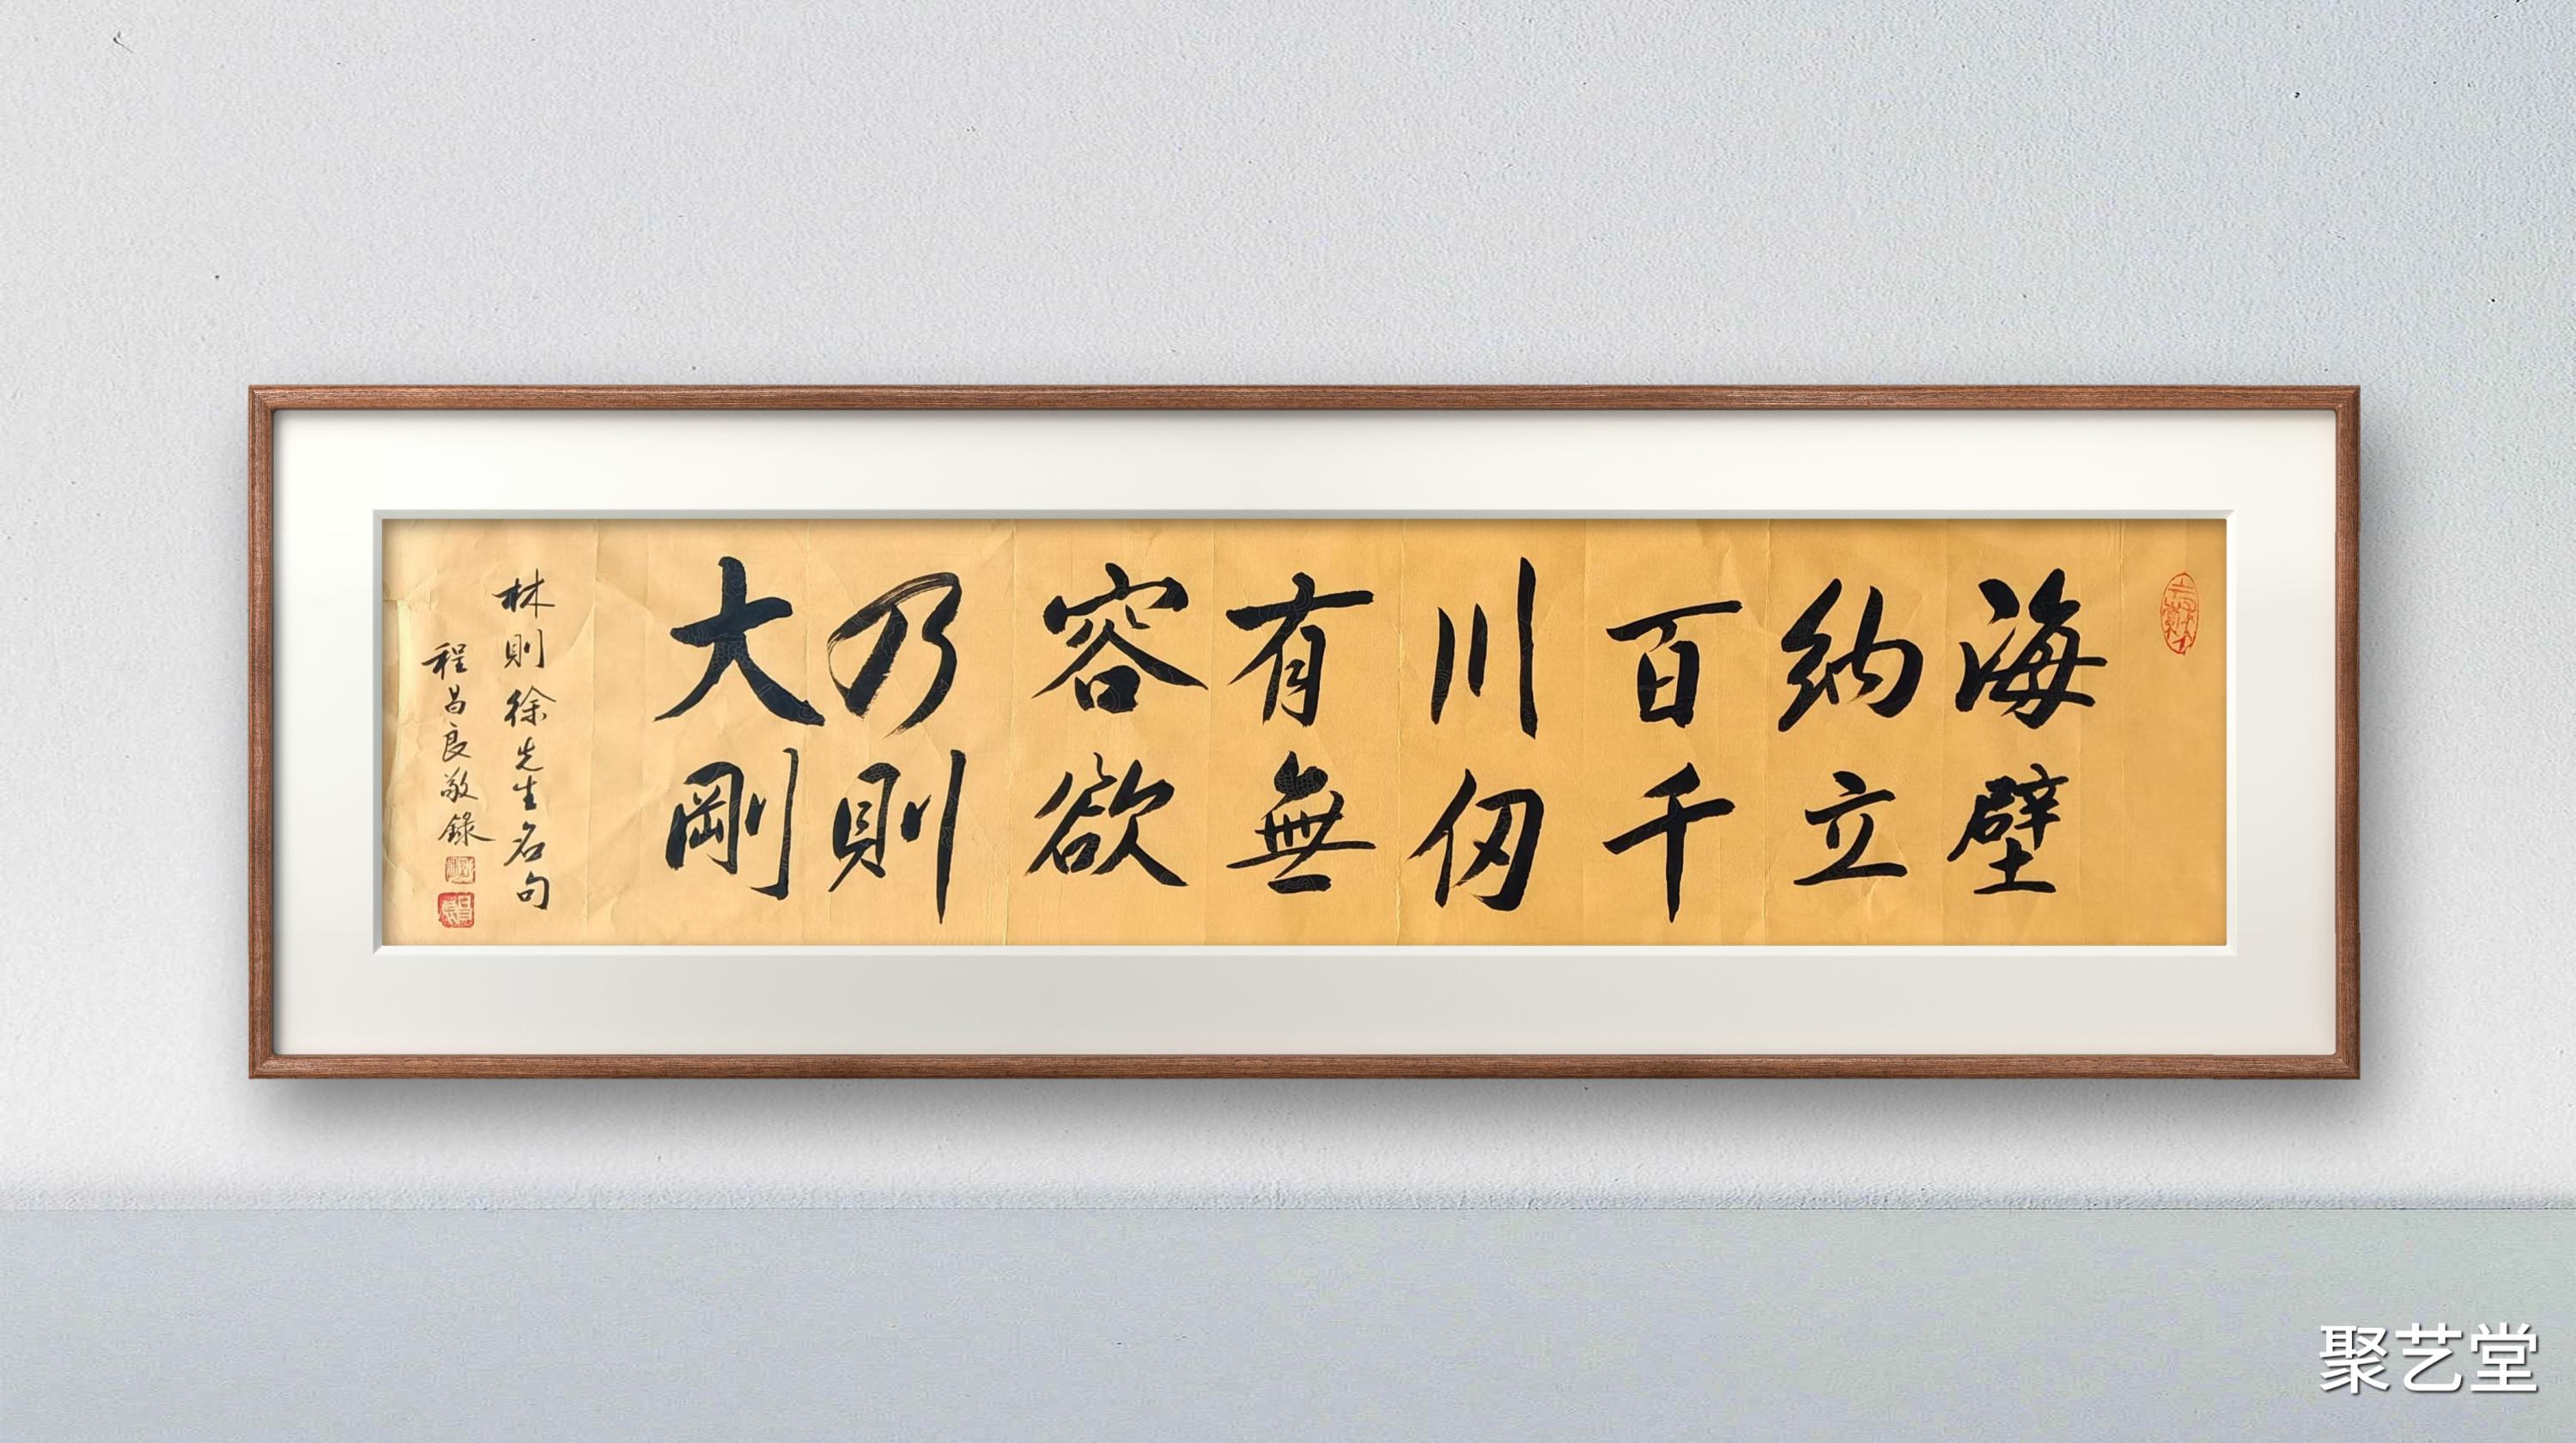 海納百川有容乃大
壁立千仞無欲則剛
林則徐先生名句
程昌良敬錄
聚艺堂